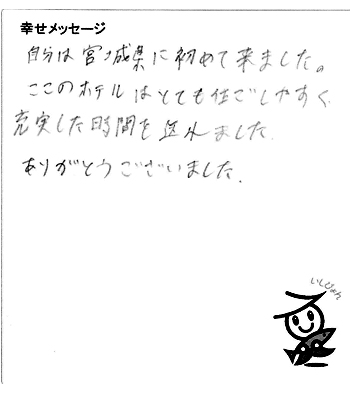 幸せメッセージ
自分は宮城県に初めて来ました。
ここのホテルはとても住ごしやすく
充実した時間を送れました.
ありがとうございました.